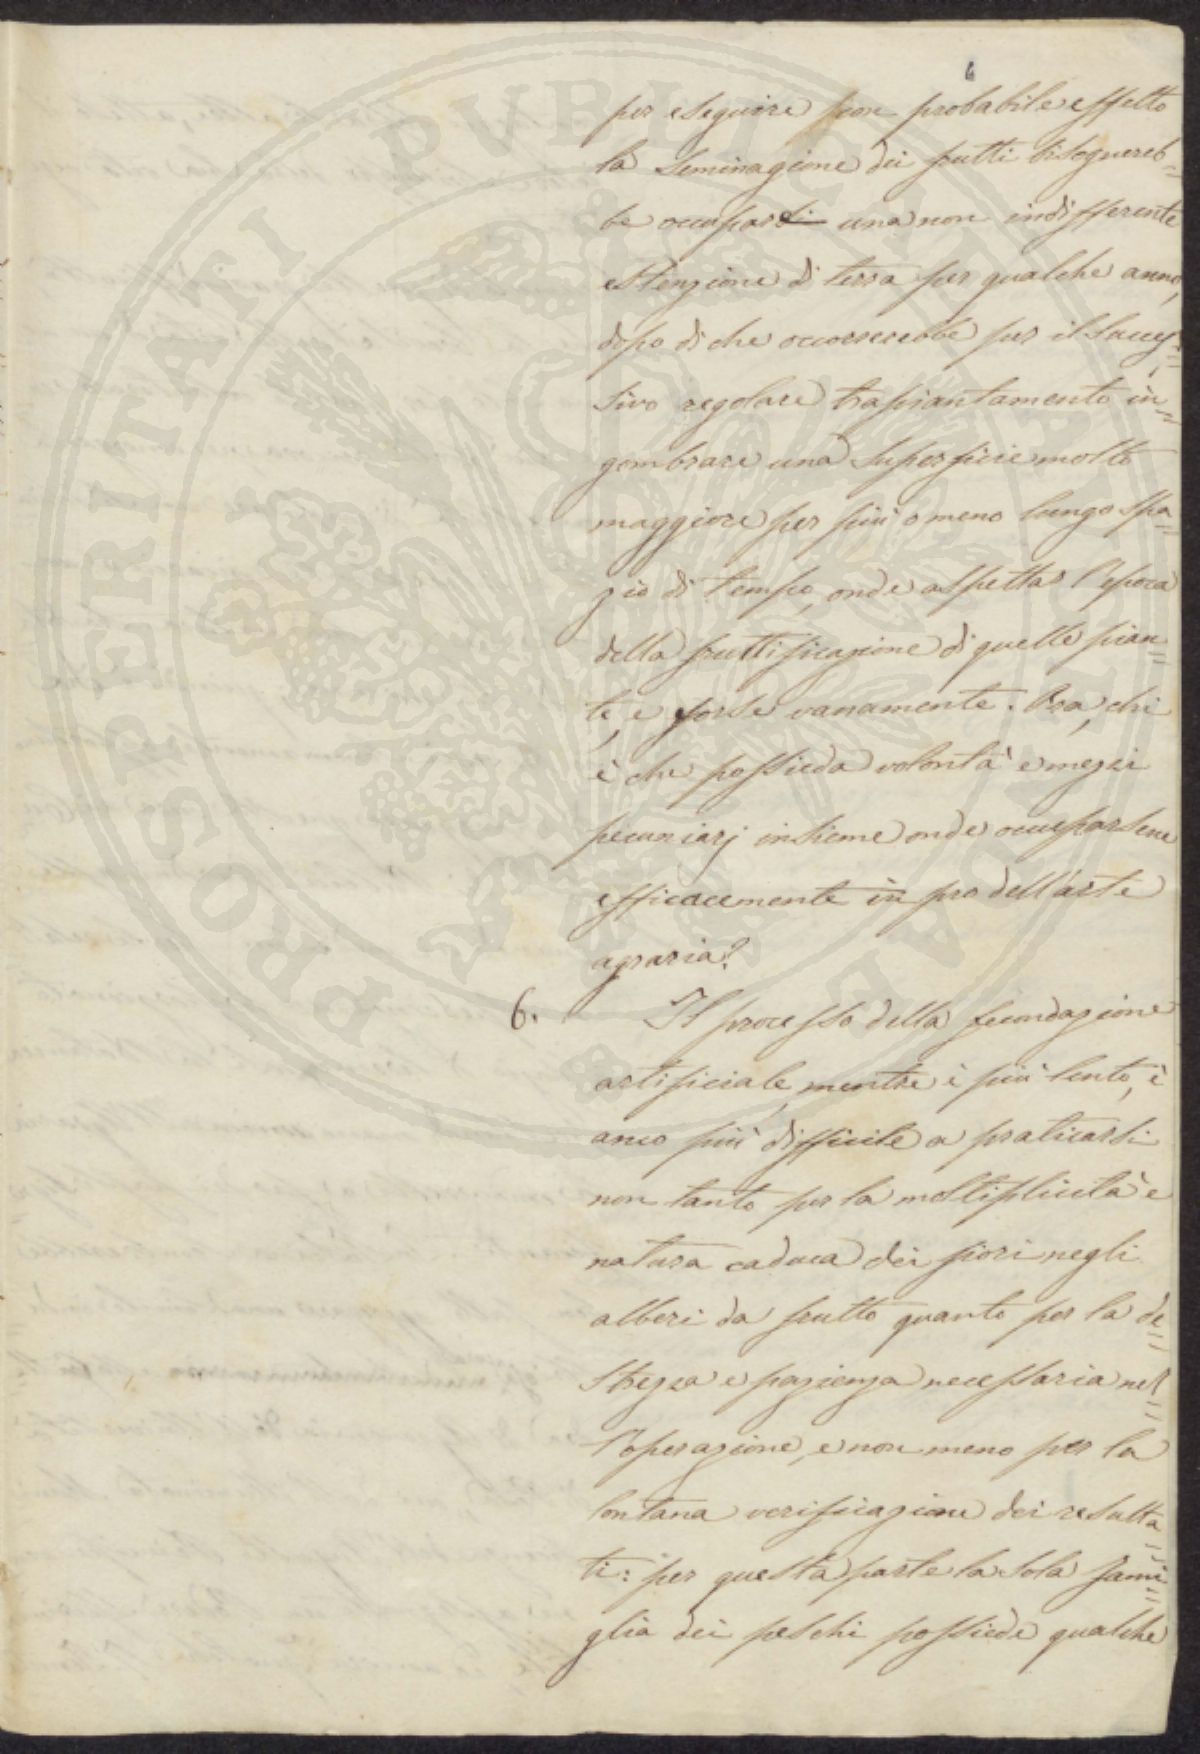 6
per eseguire con probabile effetto
la seminagione dei frutti bisognereb=
be occupar una non indifferente
estenzione di terra per qualche anno,
dopo di che occorrerebbe per il succes=
sivo regolare trapiantamento in=
gombrare una superficie molto
maggiore per più o meno lungo spa=
zio di tempo, onde aspettar l'epoca
della fruttificazione di quelle pian=
te, e forse vanamente. Ora, chi
è che possieda volontà e mezzi
pecuniarj insieme onde occuparsene
efficacemente in pro dell'arte
agraria?
6. Il processo della fecondazione
artificiale, mentre è più lento, è
anco più difficile a praticarsi
non tanto per la moltiplicità e
natura caduca dei fiori negli
alberi da frutto quanto per la de=
strezza e pazienza necessaria nel=
l'operazione, e non meno per la
lontana verificazione dei resulta=
ti: per questa parte la sola fami=
glia dei peschi possiede qualche
PROSPERITATI PUBLICAE AUGENDAE